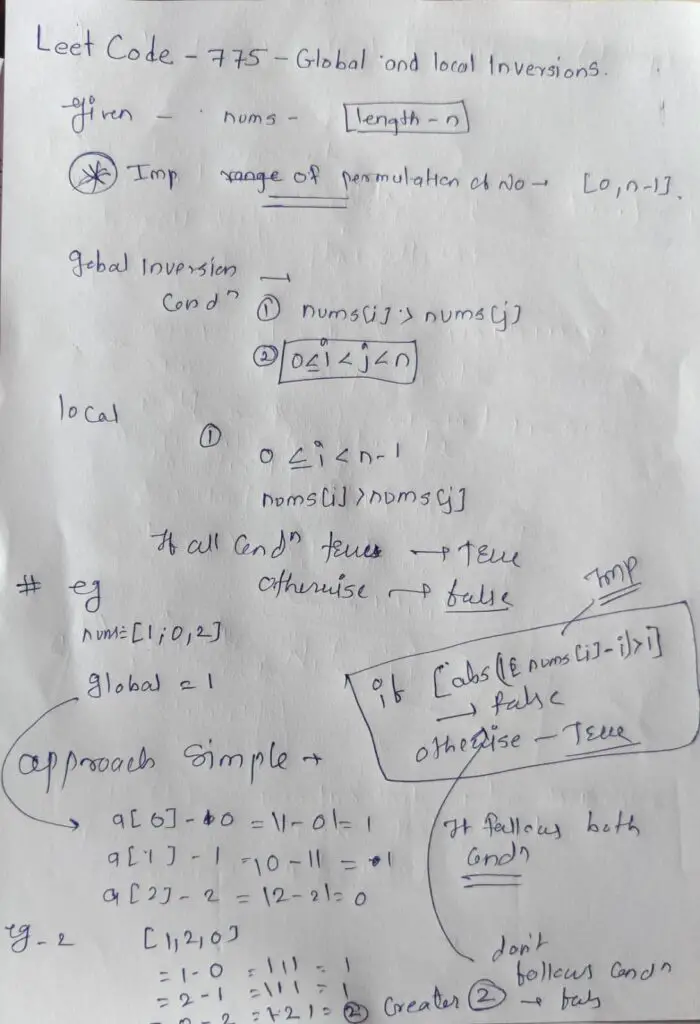 Leet Code - 775 - Global and local Inversions.
given - nums - length - n
Imp range of permulation of No → [0, n-1].
gobal Inversion →
Condn ① nums[i] > nums[j]
② 0≤i<j<n
local
① 0 ≤ i < n-1
nums[i] > nums[j]
If all Condn true → True
otherwise → false
# eg
nums=[1,0,2]
Imp
global = 1
if [abs( nums[i]-i)>1]
→ false
otherwise - True
approach simple →
a[0] - 0 = |1-0| = 1
It follows both
a[1] - 1 = |0-1| = 1
Condn
a[2] - 2 = |2-2| = 0
eg-2 [1,2,0]
don't
= 1-0 = |1| = 1
follows Condn
= 2-1 = |1| = 1
Greater ② →
0-2 = |-2| = ②